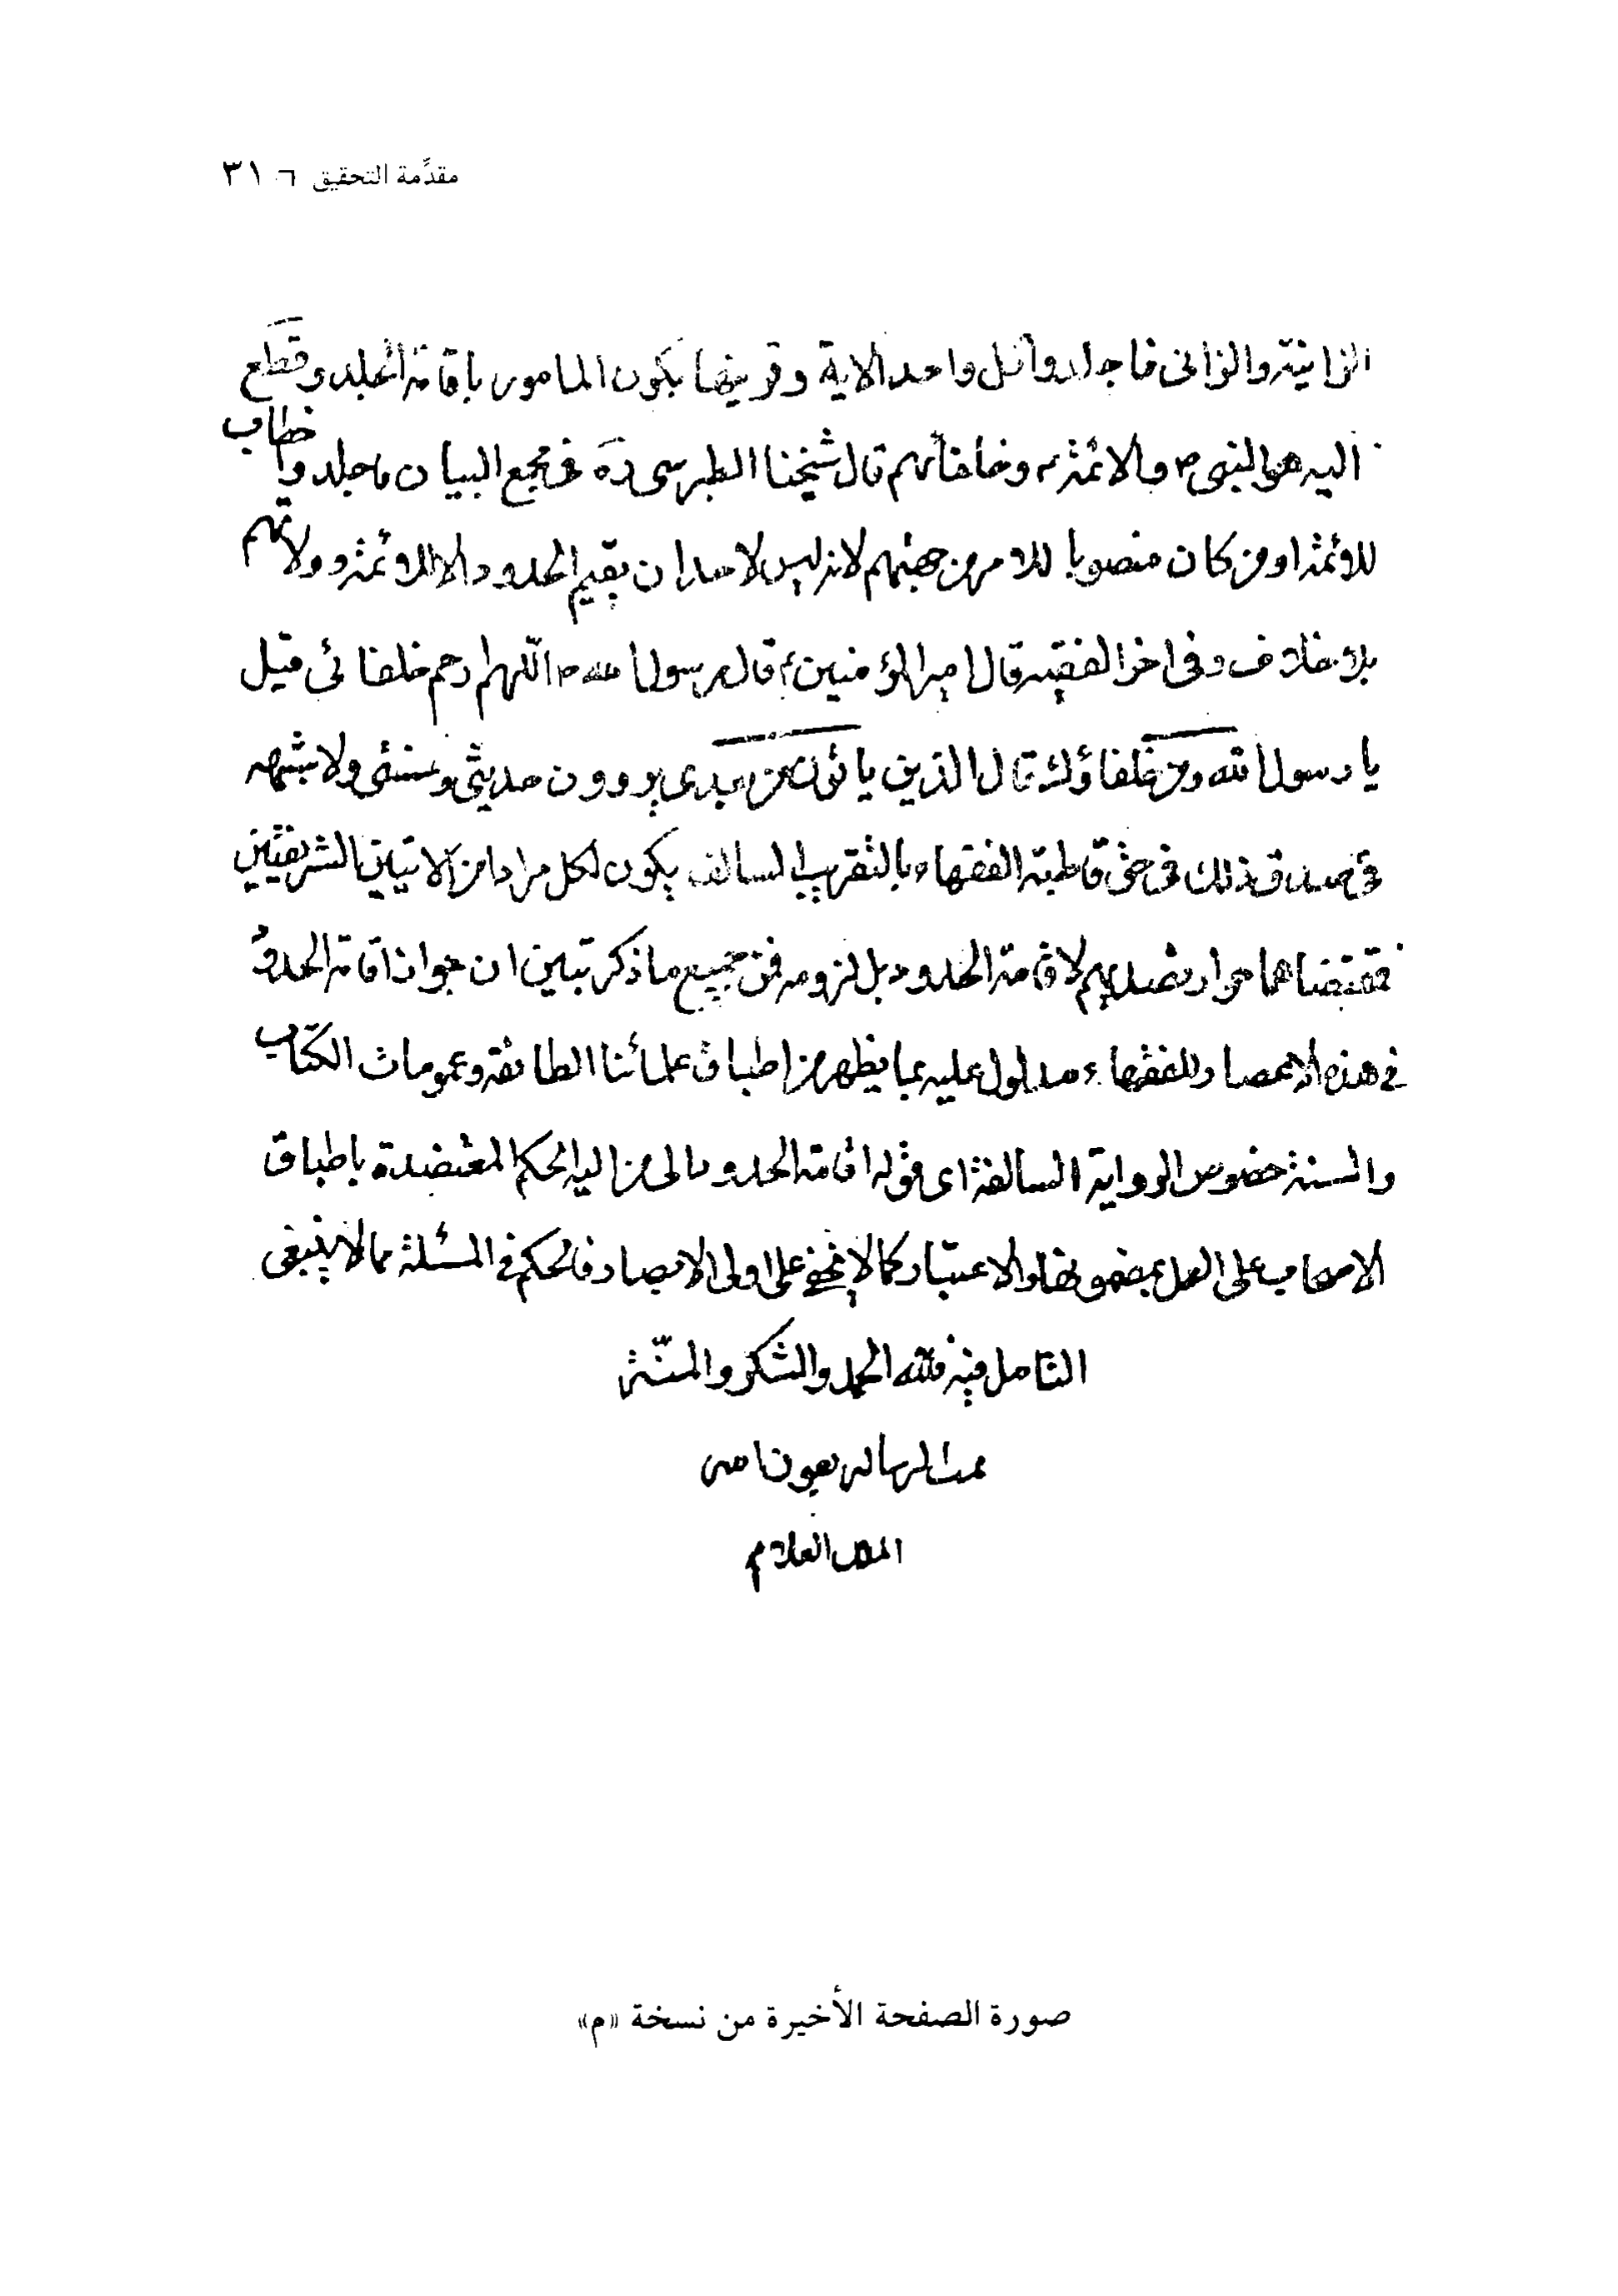 مقدَّمة التحقيق ٣١
الزانية والزانى فاجلدوا كل واحد الاية وقرينها يكون المامور باقامة الجلد وقطع
اليه هو النبى ص والائمة وخلفائهم قال شيخنا الطبرسى ره فى مجمع البيان فاجلدوا خطاب
للائمة او من كان منصوبا للامر من جهتهم لانه ليس لاحد ان يقيم الحدود الا للائمة وولاتهم
بلا خلاف وفى اخر الفقيه قال امير المؤمنين ع قال رسول الله ص اللهم ارحم خلفائى قيل
يا رسول الله ومن خلفاؤك قال الذين ياتون من بعدى يروون حديثى وسنتى ولا شبهه
فى صدق ذلك فى حق قاطبة الفقهاء بالتقريب السالف يكون لكل مرادا من الايتين الشريفتين
فمقتضاهما جواز تصديهم لاقامة الحدود بل لزومه فمن جميع ما ذكر تبين ان جواز اقامة الحدود
فى هذه الاعصار للفقهاء مدلول عليه بما يظهر من اطباق علمائنا الطائفة وعمومات الكتاب
والسنة خصوص الرواية السالفة اى قوله اقامة الحدود الى من اليه الحكم المعتضدة باطباق
الاصحاب على العمل بمضمونها والاعتبار كما لا يخفى على اولى الابصار فالحكم فى المسئلة مما لا ينبغى
التامل فيه فلله الحمد والشكر والمنّة
الرساله بعون
العلام
صورة الصفحة الأخيرة من نسخة «م»